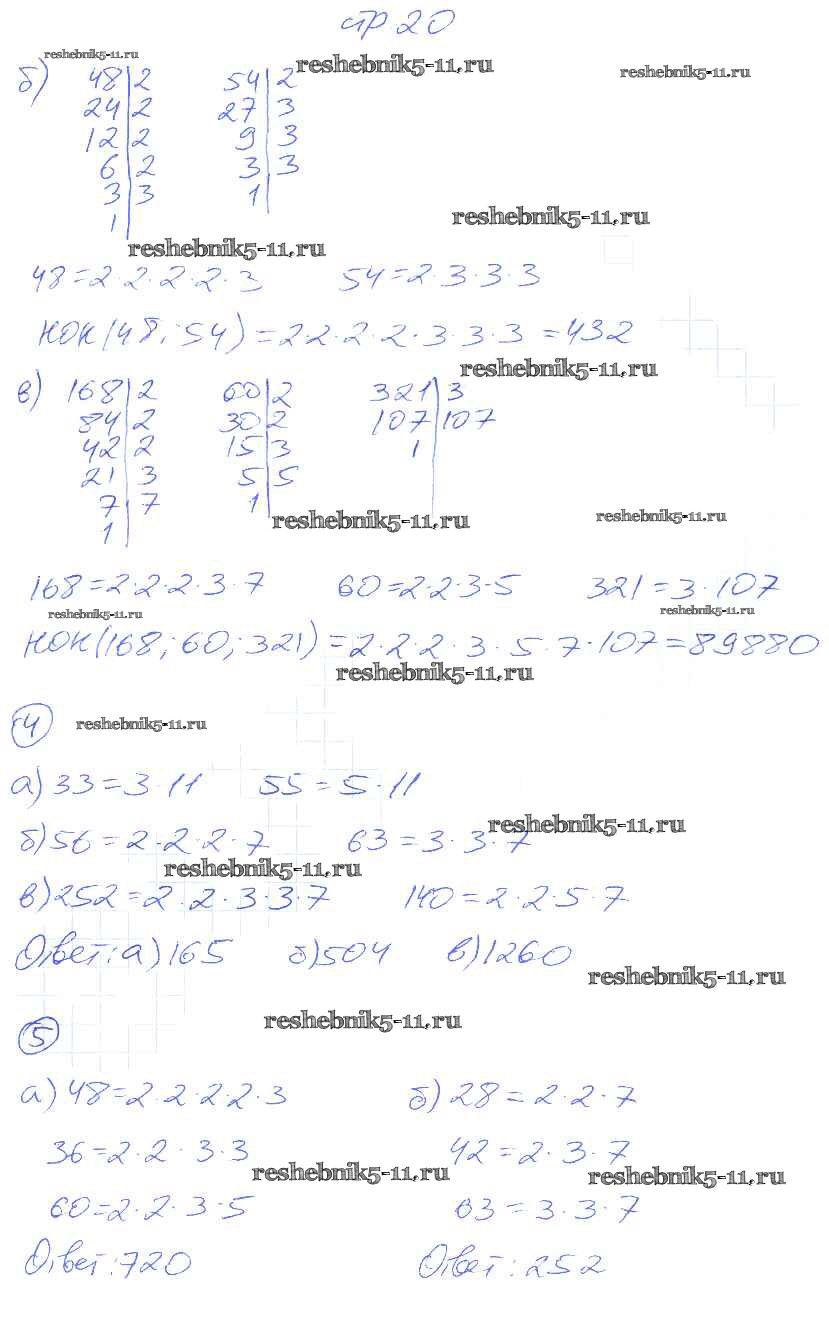 стр 20
reshebnik5-11.ru
reshebnik5-11.ru
reshebnik5-11.ru
б) 48|2 54|2
24|2 27|3
12|2 9|3
6|2 3|3
3|3 1|
1|
reshebnik5-11.ru
reshebnik5-11.ru
48=2·2·2·2·3 54=2·3·3·3
НОК(48; 54)=2·2·2·2·3·3·3=432
reshebnik5-11.ru
в) 168|2 60|2 321|3
84|2 30|2 107|107
42|2 15|3 1|
21|3 5|5
7|7 1|
1|
reshebnik5-11.ru
reshebnik5-11.ru
168=2·2·2·3·7 60=2·2·3·5 321=3·107
reshebnik5-11.ru
reshebnik5-11.ru
НОК(168; 60; 321)=2·2·2·3·5·7·107=89880
reshebnik5-11.ru
4
reshebnik5-11.ru
а) 33=3·11 55=5·11
reshebnik5-11.ru
б) 56=2·2·2·7 63=3·3·7
reshebnik5-11.ru
в) 252=2·2·3·3·7 140=2·2·5·7
Ответ: а) 165 б) 504 в) 1260
reshebnik5-11.ru
reshebnik5-11.ru
5
а) 48=2·2·2·2·3 б) 28=2·2·7
36=2·2·3·3 42=2·3·7
reshebnik5-11.ru
reshebnik5-11.ru
60=2·2·3·5 63=3·3·7
Ответ: 720 Ответ: 252